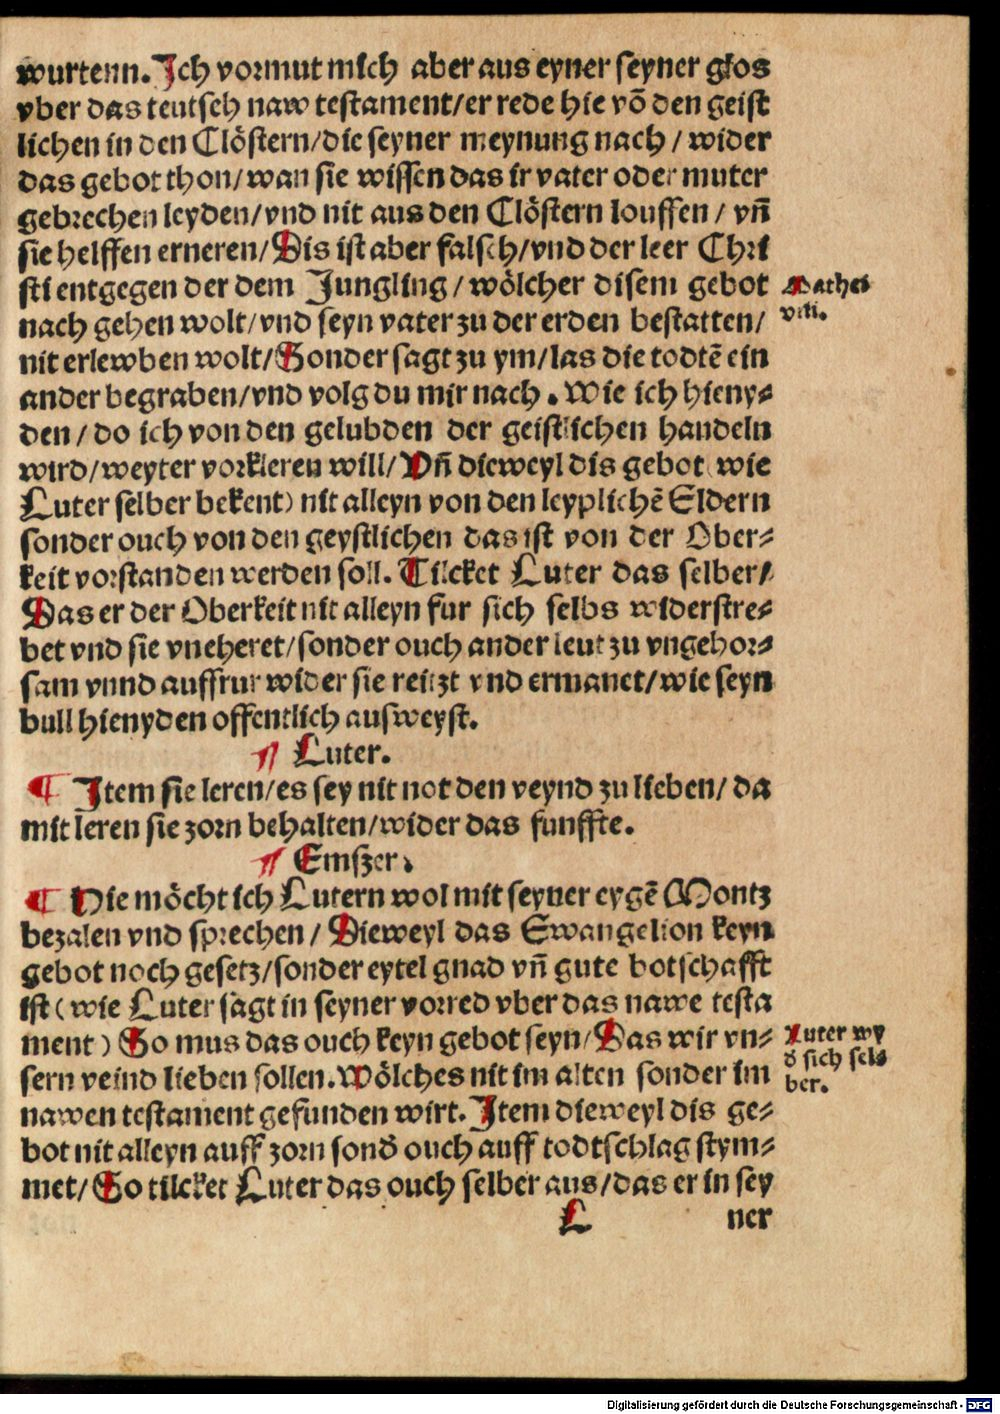 wurtenn. Ich vormut mich aber aus eyner seyner glos
vber das teutsch naw testament/er rede hie võ den geist
lichen in den Clöstern/die seyner meynung nach/ wider
das gebot thon/wan sie wissen das ir vater oder muter
gebrechen leyden/vnd nit aus den Clöstern louffen/ vñ
sie helffen erneren/Dis ist aber falsch/vnd der leer Chri
sti entgegen der dem Jungling/wölcher disem gebot
nach gehen wolt/vnd seyn vater zu der erden bestatten/
nit erlewben wolt/Sonder sagt zu ym/las die todtẽ ein
ander begraben/vnd volg du mir nach. Wie ich hieny⸗
den/do ich von den gelubden der geistlichen handeln
wird/weyter vorkleren will/Vñ dieweyl dis gebot (wie
Luter selber bekent) nit alleyn von den leyplichẽ Eldern
sonder ouch von den geystlichen das ist von der Ober⸗
keit vorstanden werden soll. Tilcket Luter das selber/
Das er der Oberkeit nit alleyn fur sich selbs widerstre⸗
bet vnd sie vneheret/sonder ouch ander leut zu vngehor⸗
sam vnnd auffrur wider sie reitzt vnd ermanet/wie seyn
bull hienyden offentlich ausweyst.
Mathei
viii.
¶ Luter.
¶ Item sie leren/es sey nit not den veynd zu lieben/ da
mit leren sie zorn behalten/wider das funffte.
¶ Emszer.
¶ Hie möcht ich Lutern wol mit seyner eygẽ Montz
bezalen vnd sprechen/ Dieweyl das Ewangelion keyn
gebot noch gesetz/sonder eytel gnad vñ gute botschafft
ist (wie Luter sagt in seyner vorred vber das nawe testa
ment) So mus das ouch keyn gebot seyn/Das wir vn⸗
sern veind lieben sollen. Wölches nit im alten sonder im
nawen testament gefunden wirt. Item dieweyl dis ge⸗
bot nit alleyn auff zorn sonđ ouch auff todtschlag stym⸗
met/So tilcket Luter das ouch selber aus/das er in sey
Luter wy
đ sich sel⸗
ber.
L ner
Digitalisierung gefördert durch die Deutsche Forschungsgemeinschaft - DFG